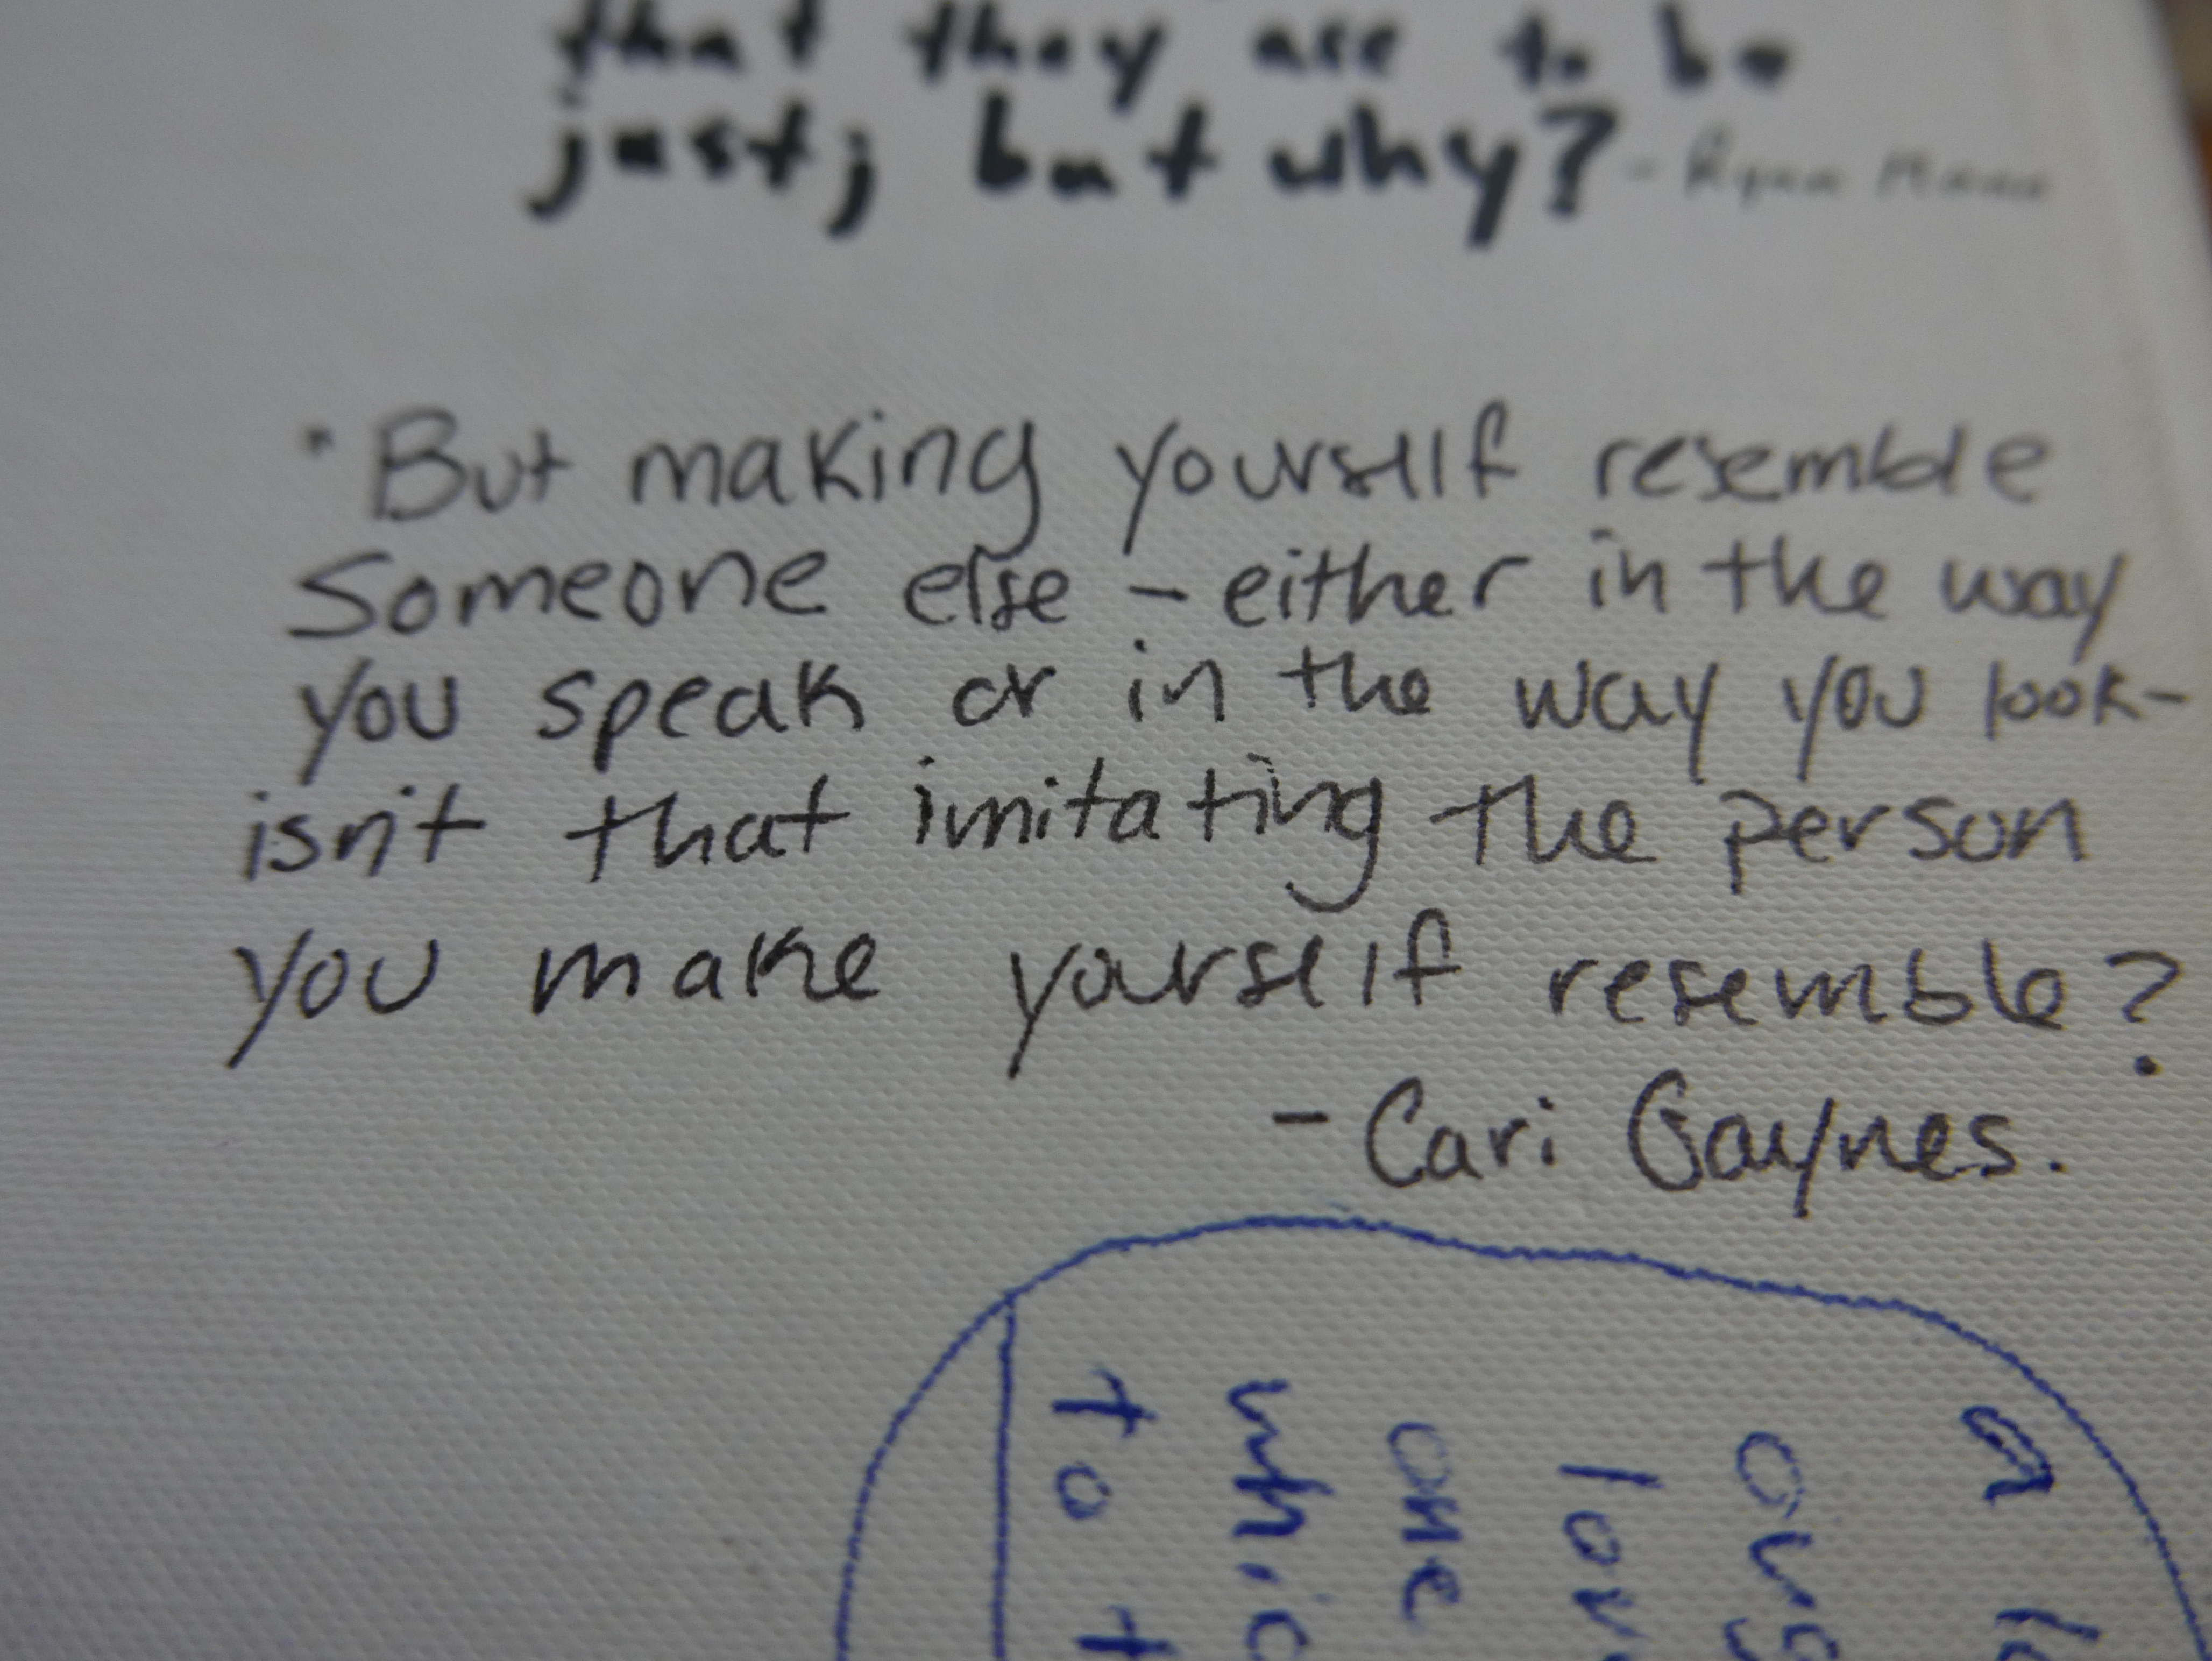 that they are to be
just; but why? - Ryan
• But making yourself resemble
Someone else - either in the way
you speak or in the way you look-
isn't that imitating the person
you make yourself resemble?
- Cari Gaynes.
a
ours
one
whic
to t